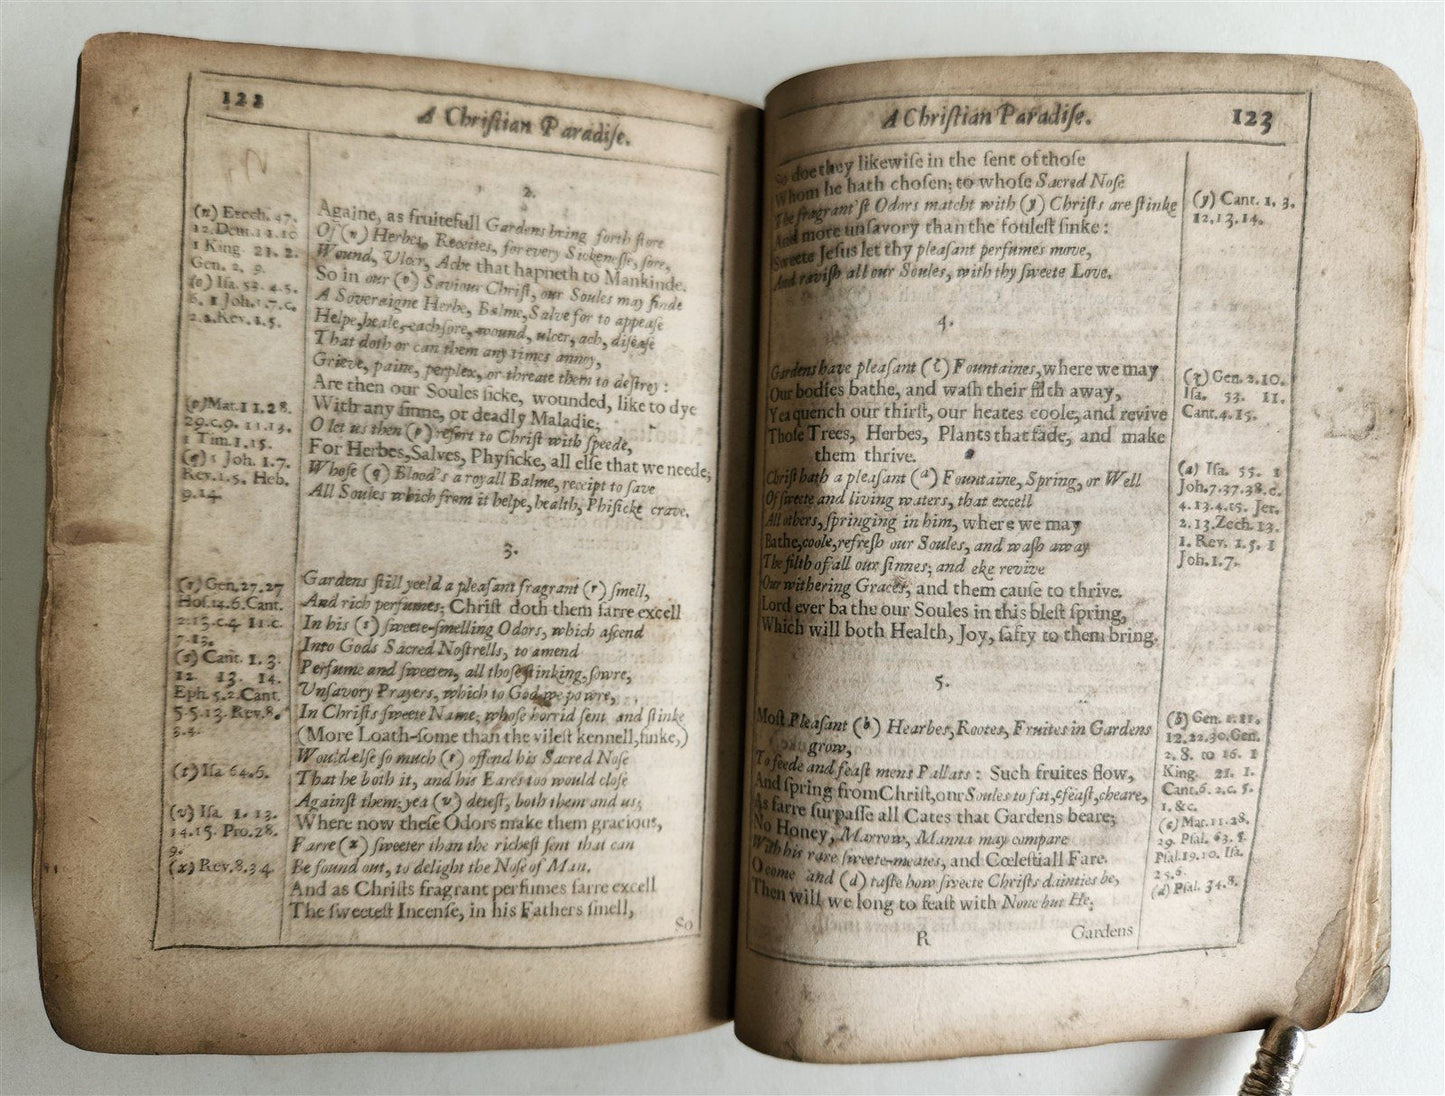 122
A Chriſtian Paradiſe.
2.
(n) Ezech. 47.
12. Deut. 11. 10
1 King. 21. 2.
Gen. 2. 9.
(o) Iſa. 53. 4.5.
6. 1 Joh. 1.7. c.
2.2. Rev. 1. 5.
(p) Mat. 11. 28.
29. c. 9. 11. 13.
1 Tim. 1. 15.
(q) 1 Joh. 1.7.
Rev. 1.5. Heb.
9.14.
Againe, as fruitefull Gardens bring forth ſtore
Of (n) Herbes, Receites, for every Sickeneſſe, ſore,
Wound, Ulcer, Ache that hapneth to Mankinde.
So in our (o) Saviour Chriſt, our Soules may finde
A Soveraigne Herbe, Balme, Salve for to appeaſe
Helpe, heale, each ſore, wound, ulcer, ach, diſeaſe
That doth or can them any times annoy,
Grieve, paine, perplex, or threate them to deſtroy:
Are then our Soules ſicke, wounded, like to dye
With any ſinne, or deadly Maladie,
O let us then (p) reſort to Chriſt with ſpeede,
For Herbes, Salves, Phyſicke, all elſe that we neede,
Whoſe (q) Blood's a royall Balme, receipt to ſave
All Soules which from it helpe, health, Phiſicke crave.
3.
(r) Gen. 27. 27
Hoſ. 14. 6. Cant.
2. 13. c.4 11. c.
7. 13.
(s) Cant. 1. 3.
12. 13. 14.
Eph. 5. 2. Cant.
5. 5. 13. Rev. 8.
3. 4.
(t) Iſa 64. 6.
(v) Iſa. 1. 13.
14. 15. Pro. 28.
9.
(x) Rev. 8. 3 4
Gardens ſtill yeeld a pleaſant fragrant (r) ſmell,
And rich perfumes; Chriſt doth them farre excell
In his (s) ſweete-ſmelling Odors, which aſcend
Into Gods Sacred Noſtrells, to amend
Perfume and ſweeten, all thoſe ſtinking, ſowre,
Unſavory Prayers, which to God we powre,
In Chriſts ſweete Name; whoſe horrid ſent and ſtinke
(More Loath-ſome than the vileſt kennell, ſinke,)
Would elſe ſo much (t) offend his Sacred Noſe
That he both it, and his Eares too would cloſe
Againſt them; yea (v) deteſt, both them and us;
Where now theſe Odors make them gracious,
Farre (x) ſweeter than the richeſt ſent that can
Be found out, to delight the Noſe of Man.
And as Chriſts fragrant perfumes farre excell
The ſweeteſt Incenſe, in his Fathers ſmell,
So
A Chriſtian Paradiſe.
123
So doe they likewiſe in the ſent of thoſe
Whom he hath choſen; to whoſe Sacred Noſe
The fragrant'ſt Odors matcht with (y) Chriſts are ſtinke
And more unſavory than the fouleſt ſinke:
Sweete Jeſus let thy pleaſant perfumes move,
And raviſh all our Soules, with thy ſweete Love.
(y) Cant. 1. 3.
12.13.14.
4.
Gardens have pleaſant (z) Fountaines, where we may
Our bodies bathe, and waſh their filth away,
Yea quench our thirſt, our heates coole, and revive
Thoſe Trees, Herbes, Plants that fade, and make
them thrive.
Chriſt hath a pleaſant (a) Fountaine, Spring, or Well
Of ſweete and living waters, that excell
All others, ſpringing in him, where we may
Bathe, coole, refreſh our Soules, and waſh away
The filth of all our ſinnes; and eke revive
Our withering Graces, and them cauſe to thrive.
Lord ever bathe our Soules in this bleſt ſpring,
Which will both Health, Joy, ſafty to them bring.
(z) Gen. 2. 10.
Iſa. 53. 11.
Cant. 4. 15.
(a) Iſa. 55. 1
Joh. 7. 37.38. c.
4. 13. 4. 15. Jer.
2. 13. Zech. 13.
1. Rev. 1. 5. 1
Joh. 1. 7.
5.
Moſt Pleaſant (b) Hearbes, Rootes, Fruites in Gardens
grow,
To feede and feaſt mens Pallats: Such fruites flow,
And ſpring from Chriſt, our Soules to fat, feaſt, cheare,
As farre ſurpaſſe all Cates that Gardens beare;
No Honey, Marrow, Manna may compare
With his rare ſweete-meates, and Cœleſtiall Fare.
O come and (d) taſte how ſweete Chriſts dainties be,
Then will we long to feaſt with None but He;
(b) Gen. 1. 11.
12. 22. 30. Gen.
2. 8. to 16. 1
King. 21. 1.
Cant. 6. 2. c. 5.
1. &c.
(c) Mat. 11. 28.
29. Pſal. 63. 5.
Pſal. 19. 10. Iſa.
25. 6.
(d) Pſal. 34. 8.
R
Gardens